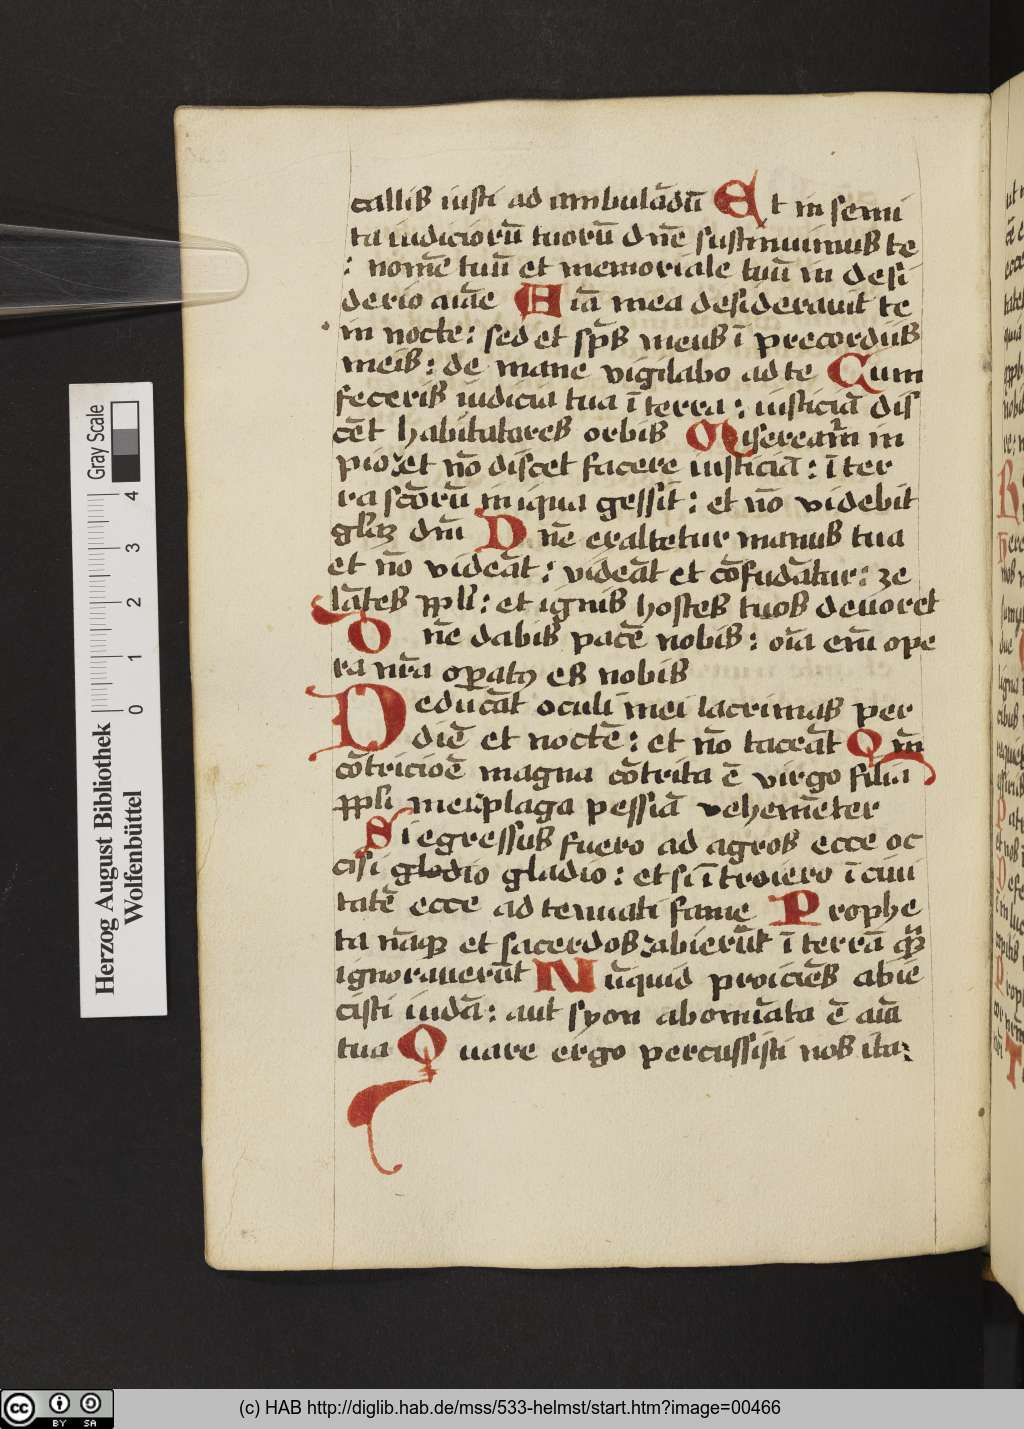 callis iusti ad ambulādū Et in semi
ta iudiciorū tuorū dn̄e sustinuimus te
: nomē tuū et memoriale tuū in desi
derio aīae Aīā mea desiderauit te
in nocte: sed et sp̄s meus ī precordiis
meis: de mane vigilabo ad te Cum
feceris iudicia tua ī terra: iusticiā dis
cēt habitatores orbis Misereām̄ in
pio ꝛ et nō discet facere iusticiā: ī ter
ra sctōrū iniqua gessit: et nō videbit
gl̄iaꝫ dn̄i Dn̄e exaltetur manus tua
et nō videāt: videāt et cōfūdātur: ze
lātes ppl̄i: et ignis hostes tuos deuoret
Dn̄e dabis pacē nobis: oīa em̄ ope
ra nr̄a opatꝰ es nobis
Deducāt oculi mei lacrimas per
diē et noctē: et nō taceāt Qm̄
cōtricioē magna cōtrita ē virgo filia
ppl̄i mei: plaga pessīā vehemēter
Si egressus fuero ad agros ecce oc
cisi gladio gladio: et si ītroiero ī ciui
tatē ecce adtenuati fame Prophe
ta nāqꝫ et sacerdos ꝛ abierūt ī terrā quā
ignorauerūt Nūquid proiciēs abie
cisti iudā: aut syon abomīata ē aīa
tua Quare ergo percussisti nos ita:
Herzog August Bibliothek
Wolfenbüttel
Gray Scale
0 1 2 3 4
cc BY SA
(c) HAB http://diglib.hab.de/mss/533-helmst/start.htm?image=00466